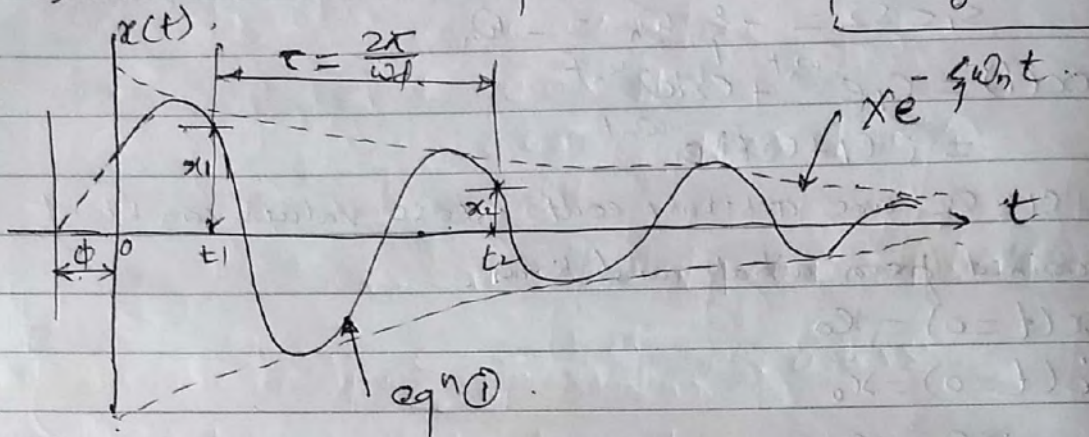 x(t).
τ = 2π/ωd
Xe^-ξωn t
x1
x2
t
ϕ
0
t1
t2
eqⁿ ①.